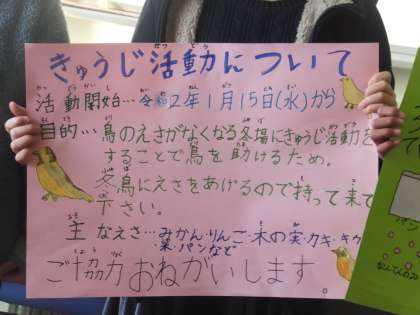 きゅうじ活動について
活動開始…令和2年1月15日(水)から
目的…鳥のえさがなくなる冬場にきゅうじ活動を
することで鳥を助けるため。
冬鳥にえさをあげるので持って来て
下さい。
主なえさ…みかん・りんご・木の実・カキ・キウ
菜・パンなど
ご協力おねがいします。
パン